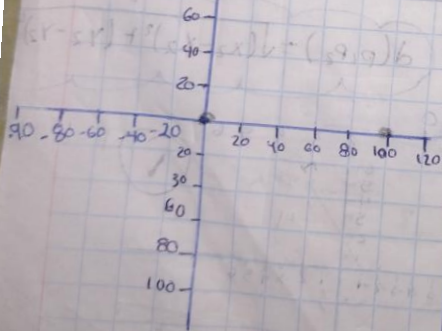 60
40
20
-90 -80 -60 -40 -20 20 40 60 80 100 120
20
30
60
80
100